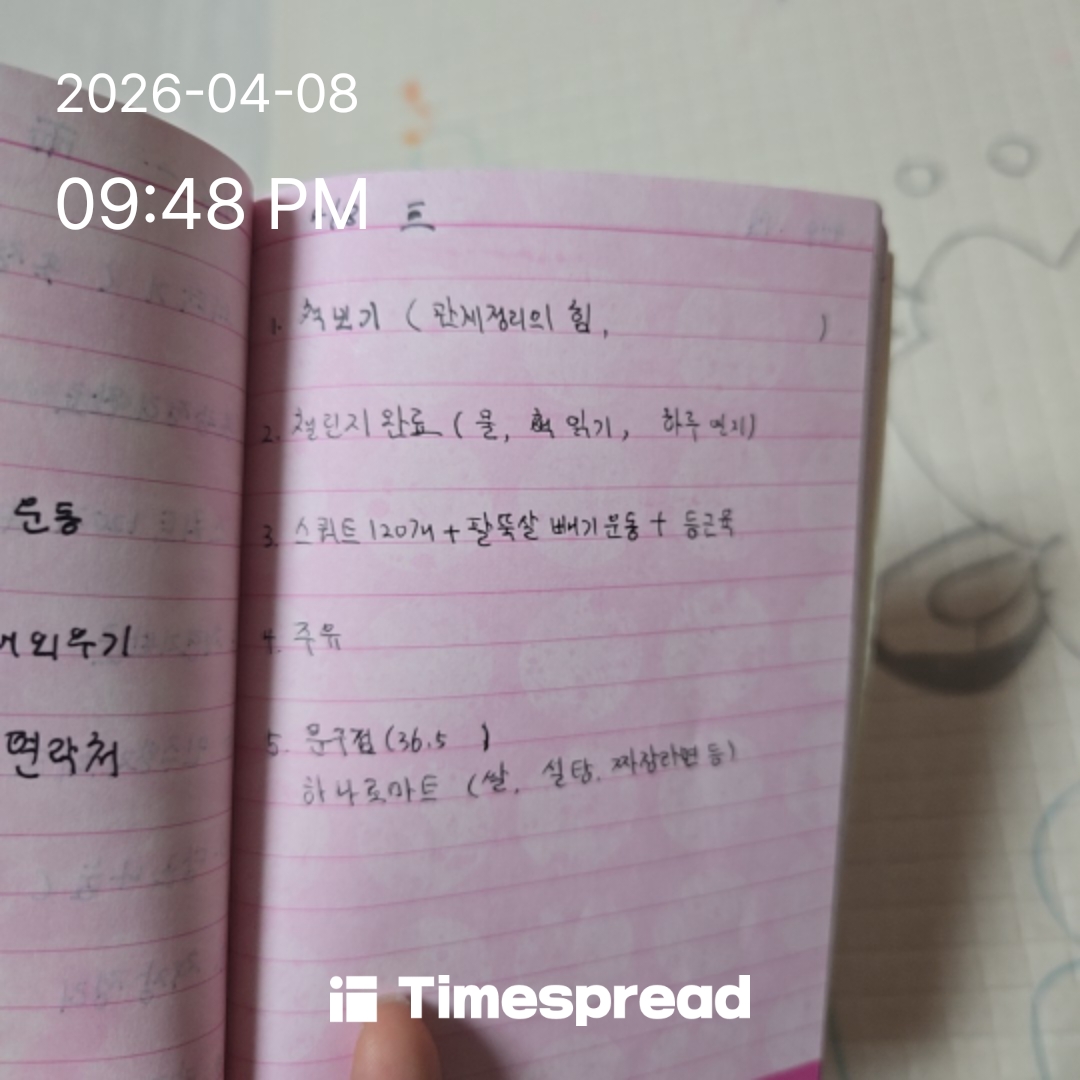 2026-04-08
09:48 PM
운동
외우기
연락처
1. 책보기 ( 관계정리의 힘, )
2. 챌린지 완료 ( 물, 책 읽기, 하루 먼지)
3. 스쿼트 120개 + 팔뚝살 빼기 운동 + 등근육
4. 주유
5. 문구점 (36.5 )
하나로마트 (쌀, 설탕, 짜장라면 등)
Timespread